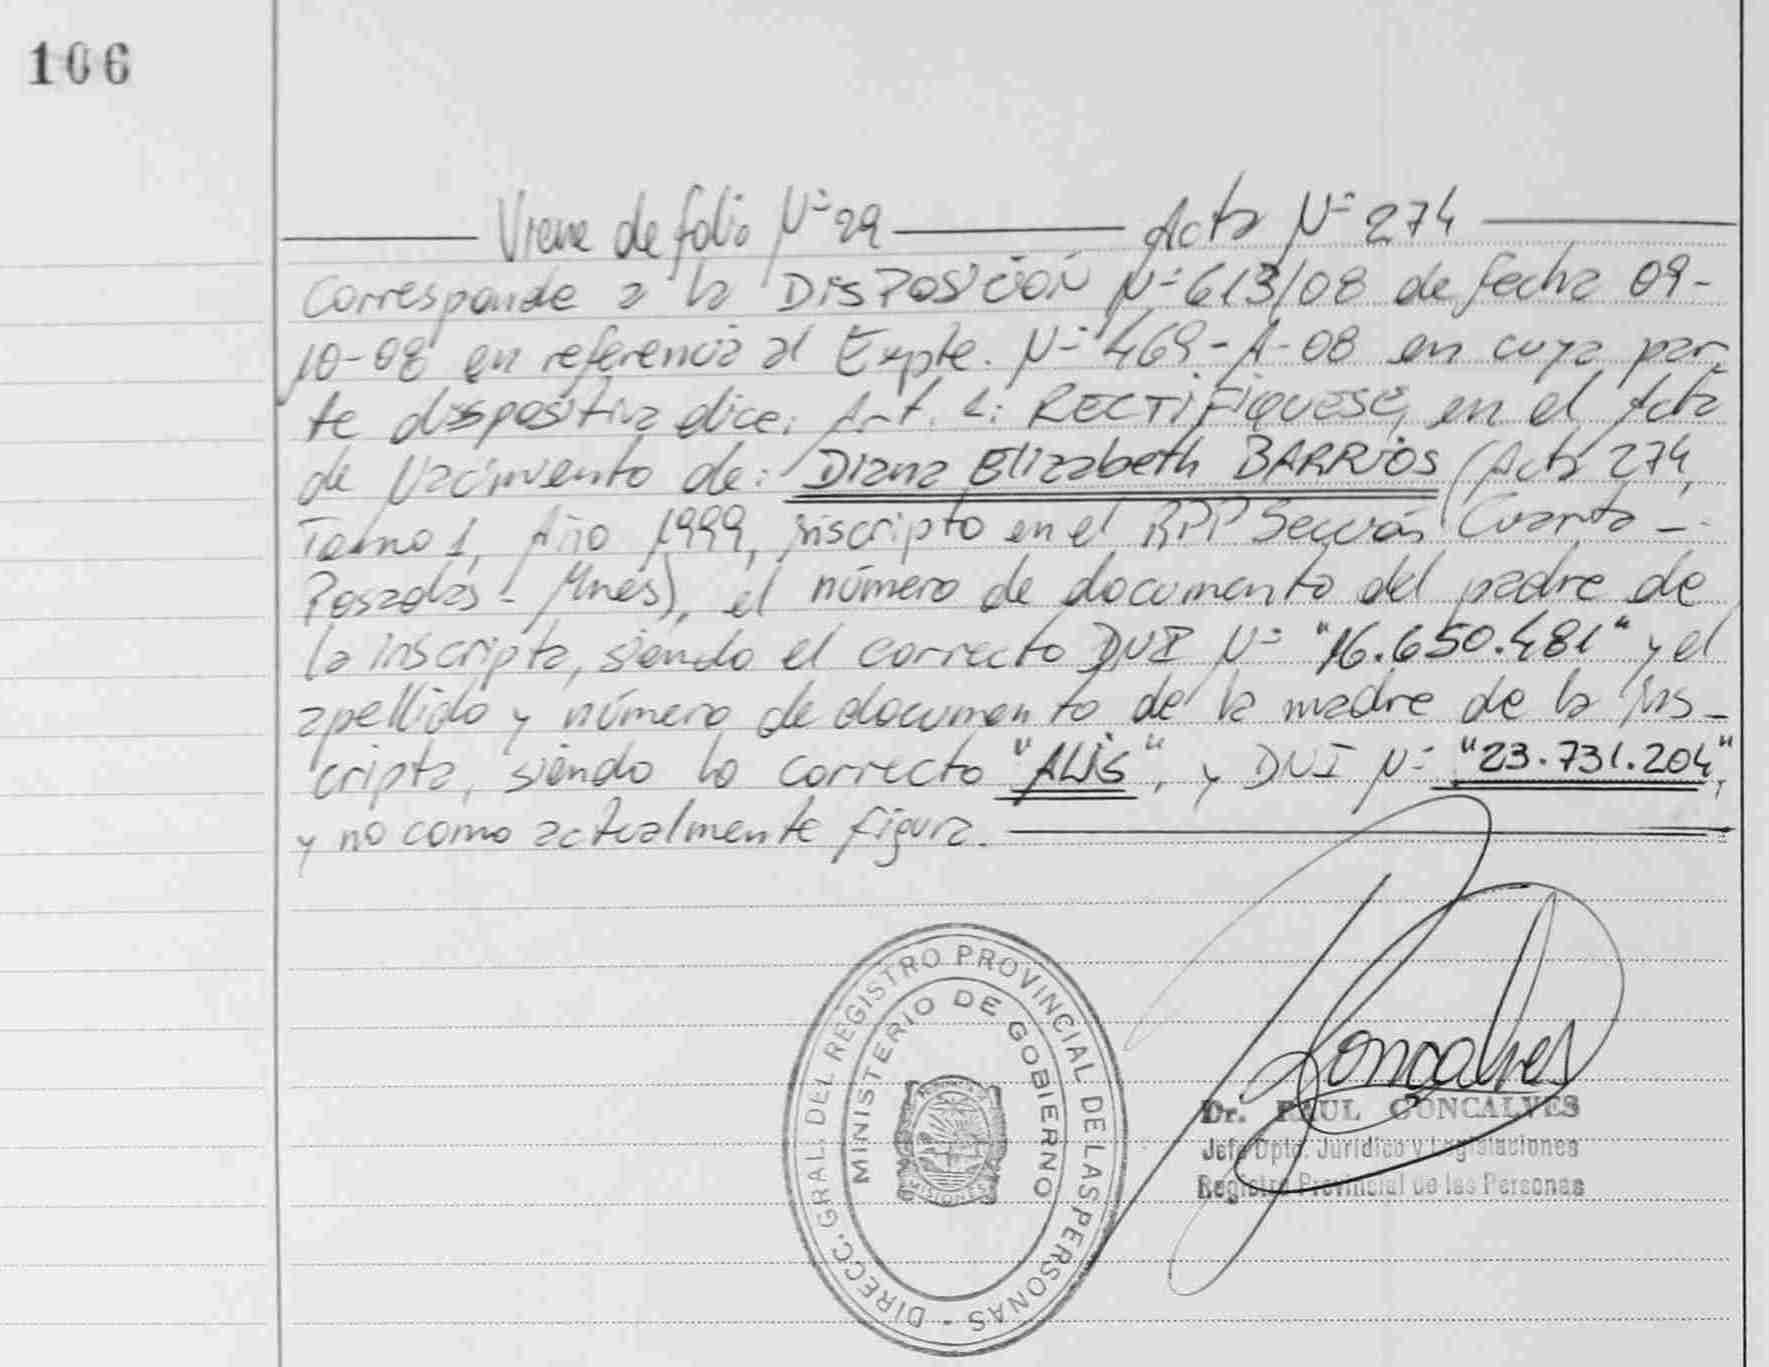 106
Viene de folio Nº 29 Acta Nº 274
Corresponde a la DISPOSICIÓN Nº 613/08 de fecha 09-
10-08 en referencia al Expte. Nº 469-A-08 en cuya par
te dispositiva dice: Art. 1: RECTIFIQUESE, en el Acta
de Nacimiento de: Diana Elizabeth BARRIOS (Acta 274,
Tomo 1, Año 1999, inscripto en el RPP Sección Cuarta -
Posadas - Mnes), el número de documento del padre de
la inscripta, siendo el correcto DNI Nº "16.650.481" y el
apellido y número de documento de la madre de la ins-
cripta, siendo lo correcto "ALIS", y DNI Nº "23.731.204",
y no como actualmente figura.
DIRECC. GRAL. DEL REGISTRO PROVINCIAL DE LAS PERSONAS -
MINISTERIO DE GOBIERNO
MISIONES
Goncalves
Dr. RAUL GONCALVES
Jefe Dpto. Jurídico y Legislaciones
Registro Provincial de las Personas